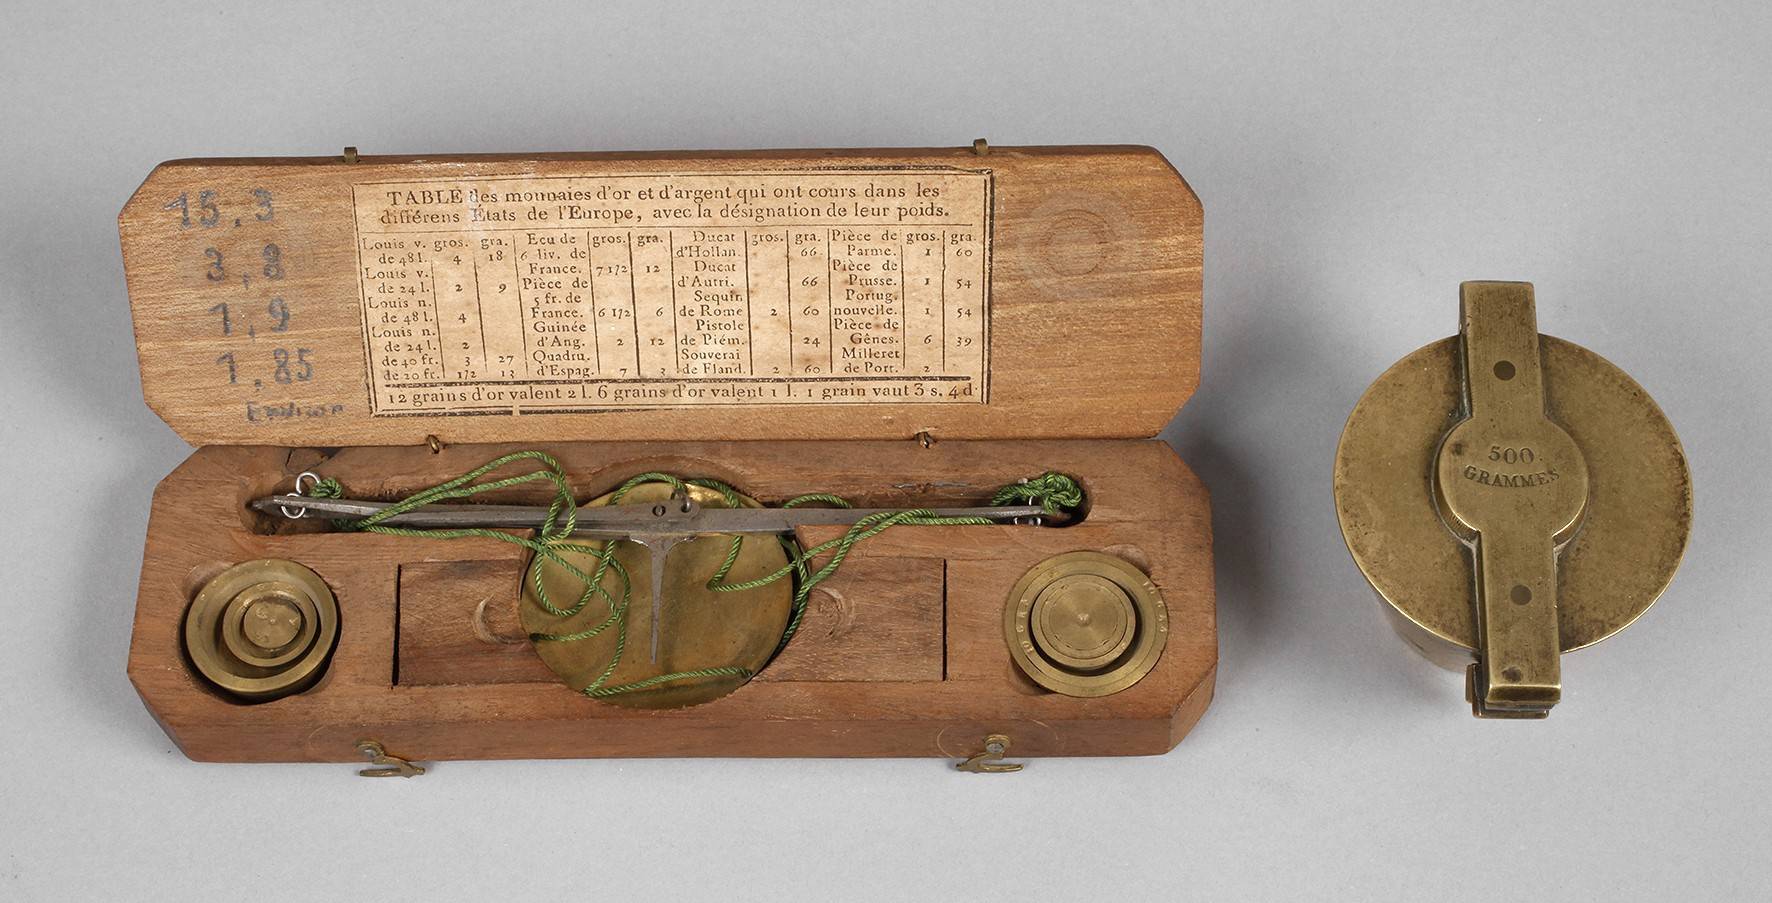 TABLE des monnaies d'or et d'argent qui ont cours dans les
différens États de l'Europe, avec la désignation de leur poids.
Louis v. gros. gra.
de 48 l. 4 18
Louis v.
de 24 l. 2 9
Louis n.
de 48 l. 4
Louis n.
de 24 l. 2
de 40 fr. 3 27
de 20 fr. 1/2 13
Ecu de gros. gra.
6 liv. de
France. 7 1/2 12
Pièce de
5 fr. de
France. 6 1/2 6
Guinée
d'Ang. 2 12
Quadru.
d'Espag. 7 3
Ducat gros. gra.
d'Hollan. 66
Ducat
d'Autri. 66
Sequin
de Rome 2 60
Pistole
de Piém. 24
Souverai
de Fland. 2 60
Pièce de gros. gra.
Parme. 1 60
Pièce de
Prusse. 1 54
Portug.
nouvelle. 1 54
Pièce de
Gênes. 6 39
Milleret
de Port. 2
12 grains d'or valent 2 l. 6 grains d'or valent 1 l. 1 grain vaut 3 s. 4 d
15,3
3,8
7,9
7,85
500.
GRAMMES